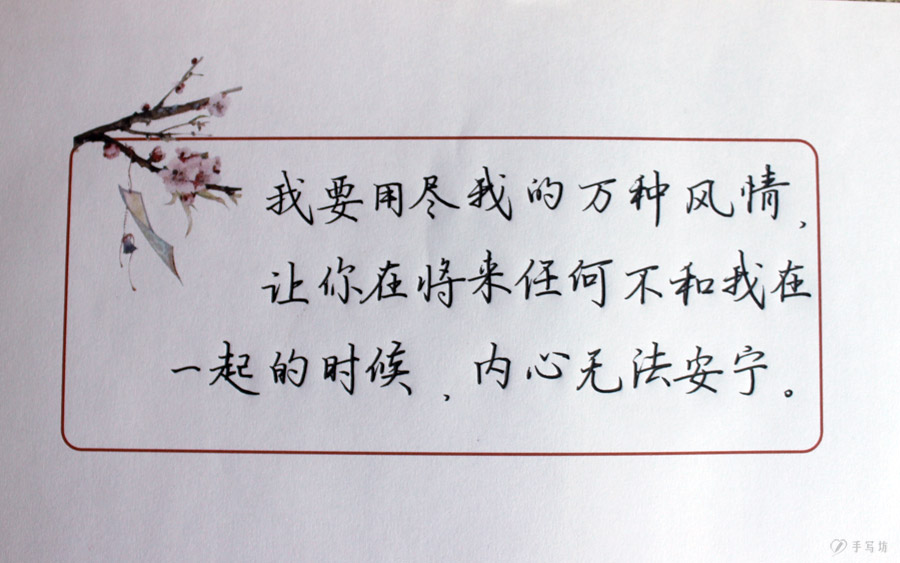 我要用尽我的万种风情，
让你在将来任何不和我在
一起的时候，内心无法安宁。
手写坊